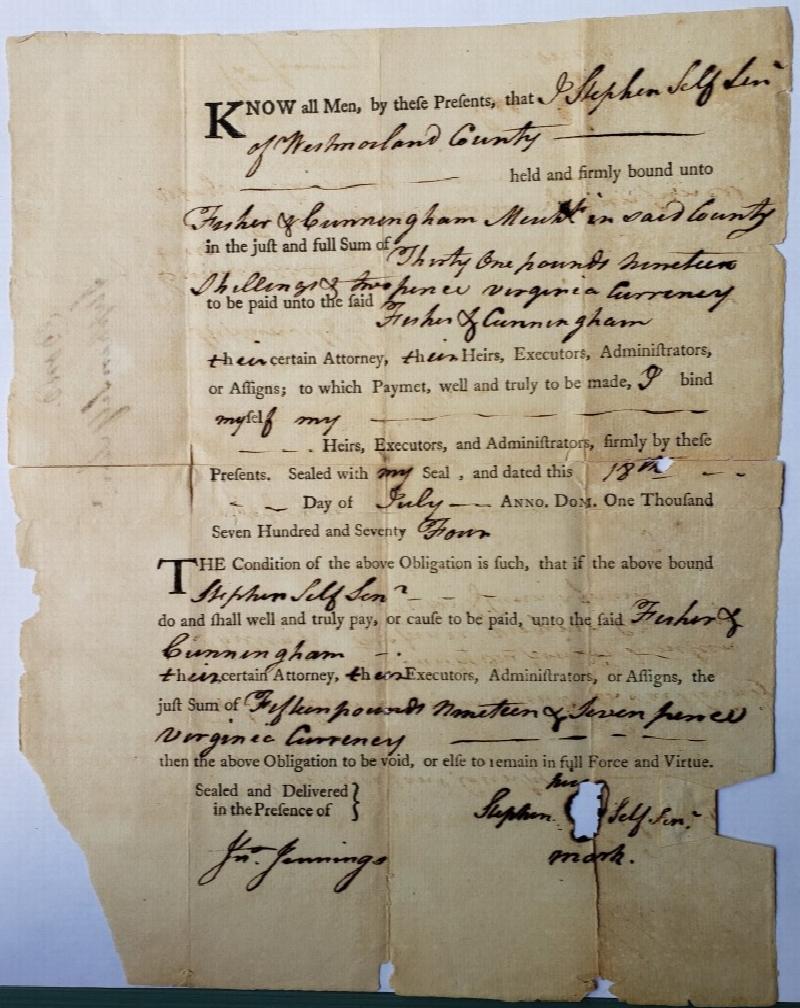 KNOW all Men, by theſe Preſents, that I Stephen Self Senr
of Westmorland County
held and firmly bound unto
Fisher & Cunningham Mercht in said County
in the juſt and full Sum of Thirty One pounds nineteen
Shillings & two pence virginia Currency
to be paid unto the ſaid Fisher & Cunningham
their certain Attorney, their Heirs, Executors, Adminiſtrators,
or Aſſigns; to which Paymet, well and truly to be made, I bind
myself my
Heirs, Executors, and Adminiſtrators, firmly by theſe
Preſents. Sealed with my Seal , and dated this 18th
Day of July ANNO. DOM. One Thouſand
Seven Hundred and Seventy Four
THE Condition of the above Obligation is ſuch, that if the above bound
Stephen Self Senr
do and ſhall well and truly pay, or cauſe to be paid, unto the ſaid Fisher &
Cunningham
their certain Attorney, their Executors, Adminiſtrators, or Aſſigns, the
juſt Sum of Fifteen pounds nineteen & Seven pence
virginia Currency
then the above Obligation to be void, or elſe to remain in full Force and Virtue.
Sealed and Delivered
in the Preſence of
his
Stephen Self Senr
mark.
Jno. Jennings